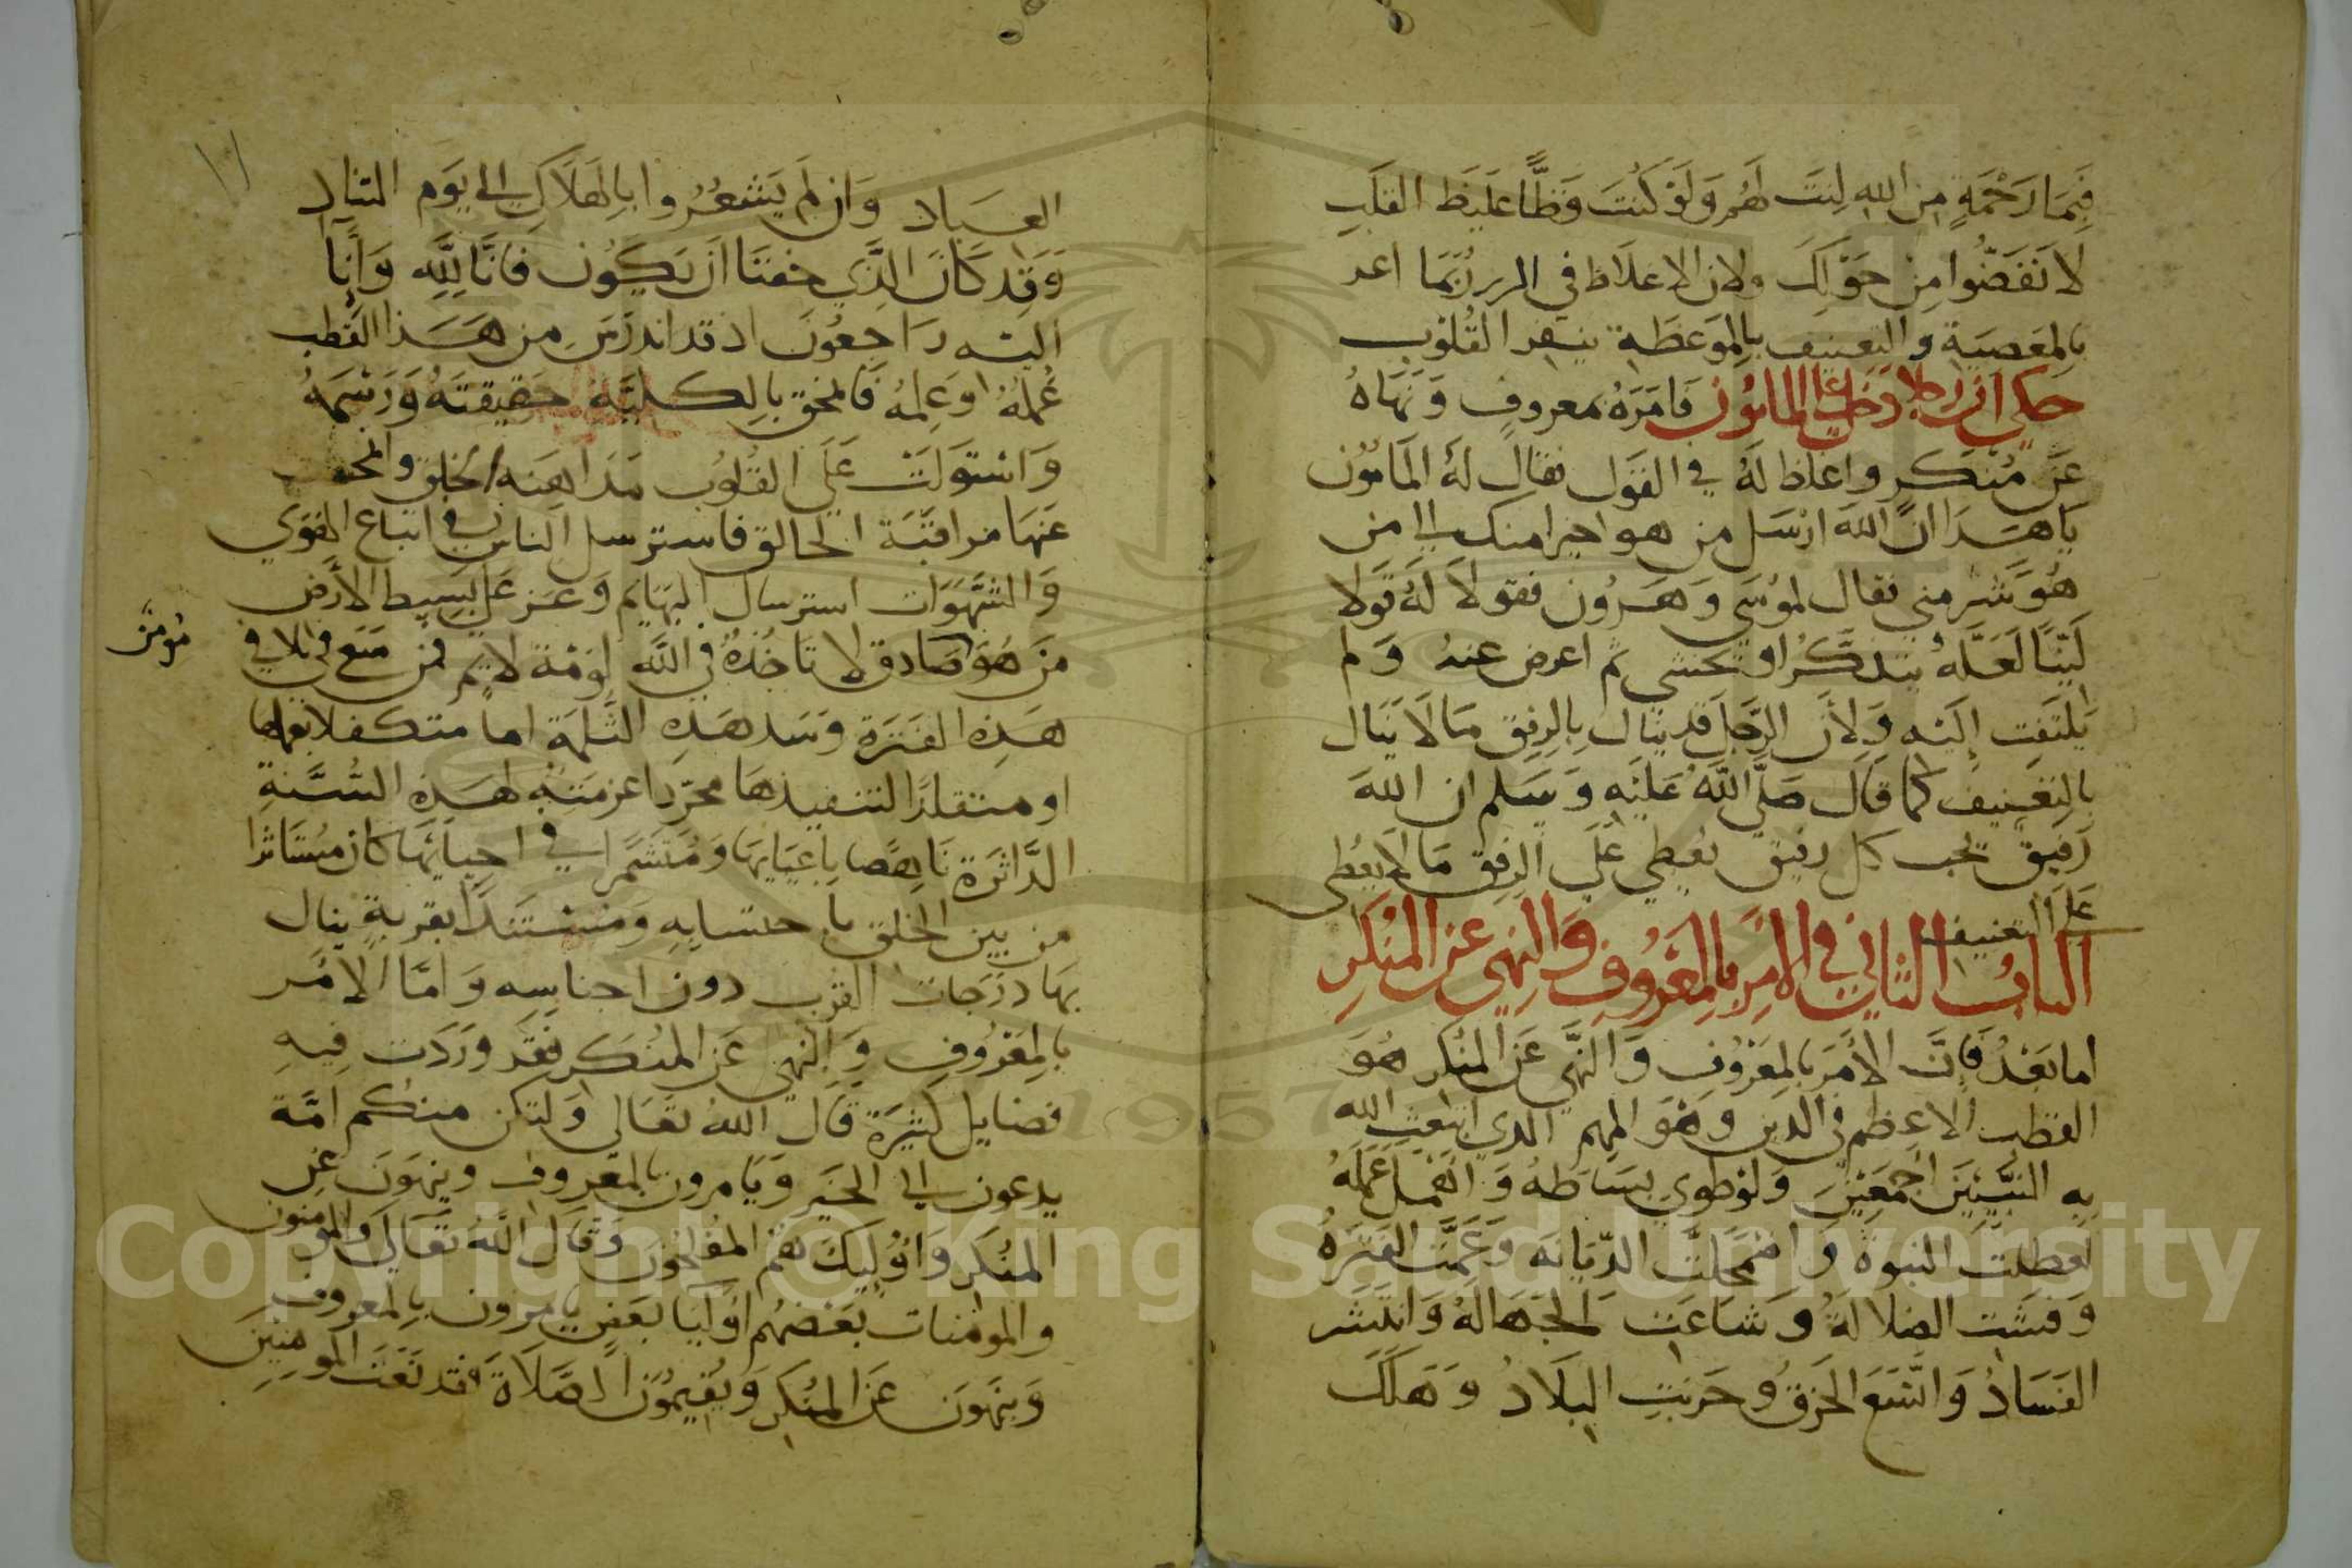 فَبِمَا رَحْمَةٍ مِنَ اللهِ لِنتَ لَهُم وَلَوْ كُنتَ فَظًّا غَلِيظَ القَلبِ
لَا نفَضُّوا مِنْ حَوْلِكَ ولان الاغلاظ في الزجر ربما اغر
بِالمعَصيَةِ والتعنيف بِالموَعظَةِ ينفر القُلوُب
حكي ان رجلا دخل على المامُون فَامَرَهُ بمعروفٍ وَنَهَاهُ
عَن مُنكَرٍ واغلظ لَهُ في القوَل فقال لهُ المَامُون
يَا هَذَا انَّ اللهَ ارْسَل من هو اخير منك الى من
هُوَ شَر مني فقال لموُسَى وَهَرُون فقولاَ لَهُ قَولا
لَيّنًا لَعَلَّهُ يتذَكَّرُ او يخشى ثم اعرض عنهُ وَلم
يلتَفِت إِليَه وَلأَن الرَّجلَ قد ينَال بِالرِفقِ مَا لَا يَنَال
بالتعَنيف كما قالَ صَلَّى اللَّهُ عَليَهِ وَسَلم ان اللهَ
رَفيق يحب كل رفيق يُعطي عَلَى الرفق مَا لا يعُطى
عَلى التعنيف
البَابُ الثاني في الامر بالمعَرُوفِ وَالنهي عَن المُنكَرِ
اما بَعدُ فَإنَّ الأمَر بالمعَرُوفِ وَالنَّهي عَن المُنكر هُوَ
القطب الاعظم في الدين وهَوَ المهم الذي ابتَعث الله
بِه النبَيّينَ اجمعَينَ وَلوَ طوي بسَاطهُ وَاهمل عَمَلَهُ
لتعَطلَتَ النبوةُ وَاضمحَلتَّ الدّيَانة وَعَمَّت الفترَةُ
وَفشَت الضَلالَةُ وَشاعَت الجَهَالَهُ وَانتشَر
الفسَادُ وَاتسَّعَ الخَرقُ وَخربَتِ البِلَادُ وَهَلَكَ
١١
العبَاد وَان لم يَشعُرُوا بالهَلاَكِ الى يَوم التناد
وَقد كَانَ الَّذِي خفنَا ان يَكُون فانَّا لِلَّهِ وَانَّا
اليه رَاجعوُنَ اذ قد اندرَسَ مِن هَذا القطب
عَملهُ اوَعلِمُهُ فَامحَق بِالكليَّةِ حَقيقتَهُ وَرَسمَهُ
وَاستَولَتْ عَلَى القُلوُب مدَاهَنه الخلق وانمحت
عَنهَا مراقبَة الخالق فاسترسل الناس في اتباع الهَوَي
وَالشهَوَات استرسال البهَايم وَعَزعَلى بسَيط الأرَض
مُومن
مَن هُوَ صَادق لا تَاخُذُهُ في اللَّه لوَمَة لايم فمن سَعى في تلافي
هَذِه الفَترَة وَسَد هَذه الثّلمَة اما متكفلا بعملها
او متقلدًا لتنفيذهَا مجّردا عزمَتهُ لهَذِه السُّنةِ
الدَّاثرَة نَاهِضًا باعبَايهَا وَمُتشَمّرا في احيَايهَا كان مسُتاثرا
من بين الخلق باحتسابه وَمسُتندًا بقربةٍ ينال
بهَا دَرَجَات القرَب دون اجناسِه وَامَّا الامُر
بالمعَرُوفِ وَالنهي عَن المنُكَر فَقَد وَرَدَت فِيهِ
فضايل كثيَرة قالَ اللهُ تعَالى وَلتكن منكم امَّة
يدعون الى الخَير وَيَامرون بالمعَروف وينهَونَ عَن
المنُكَر وَاوُليَكَ هُمُ المفُلحوُنَ وَقَال اللَّهُ تعَالى وَالمؤمنون
والموُمنَات بَعَضهُم اوُليَا بَعَضٍ يَامرون بِالمعَروف
وَينهَونَ عَن المنُكَرِ وَيُقيموُن الصَلاَةَ فقد نَعَتَ المؤمِنِينَ